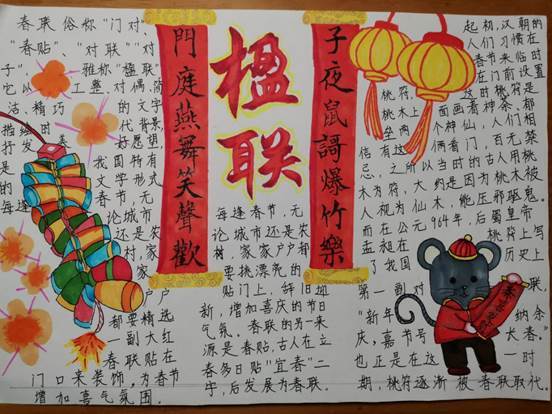 春联俗称“门对、
“春贴”、“对联”“对
子”，雅称“楹联”
它以工整、对偶、简
洁、精巧的文字
描绘时代背景，
抒发美好愿望，
是我国特有
的文学形式
每逢春节，无
论城市
还是农
村，家
家户户
都要精选
一副大红
春联贴在
门口来装饰，为春节
增加喜气氛围。
門庭燕舞笑聲歡
楹联
子夜鼠謌爆竹樂
每逢春节，无
论城市还是农
村，家家户户都
要挑漂亮的
贴门上，辞旧迎
新，增加喜庆的节日
气氛。春联的另一来
源是春贴，古人在立
春多日贴“宜春”二
字，后发展为春联。
起初，汉朝的
人们习惯在
春节来临时
在门前设置
桃符。这时桃符是
桃木上面画着神荼、郁
垒两个神仙，人们相
信有这俩看门，百无禁
忌，之所以当时的古人用桃
木为符，大约是因为桃木被
人视为仙木，能压邪驱鬼。
而在公元964年，后蜀皇帝
孟昶在桃符上写
了我国历史上
第一副对联，
“新年纳余
庆，嘉节号长春。”
也正是在这一时
期，桃符逐渐被春联取代。